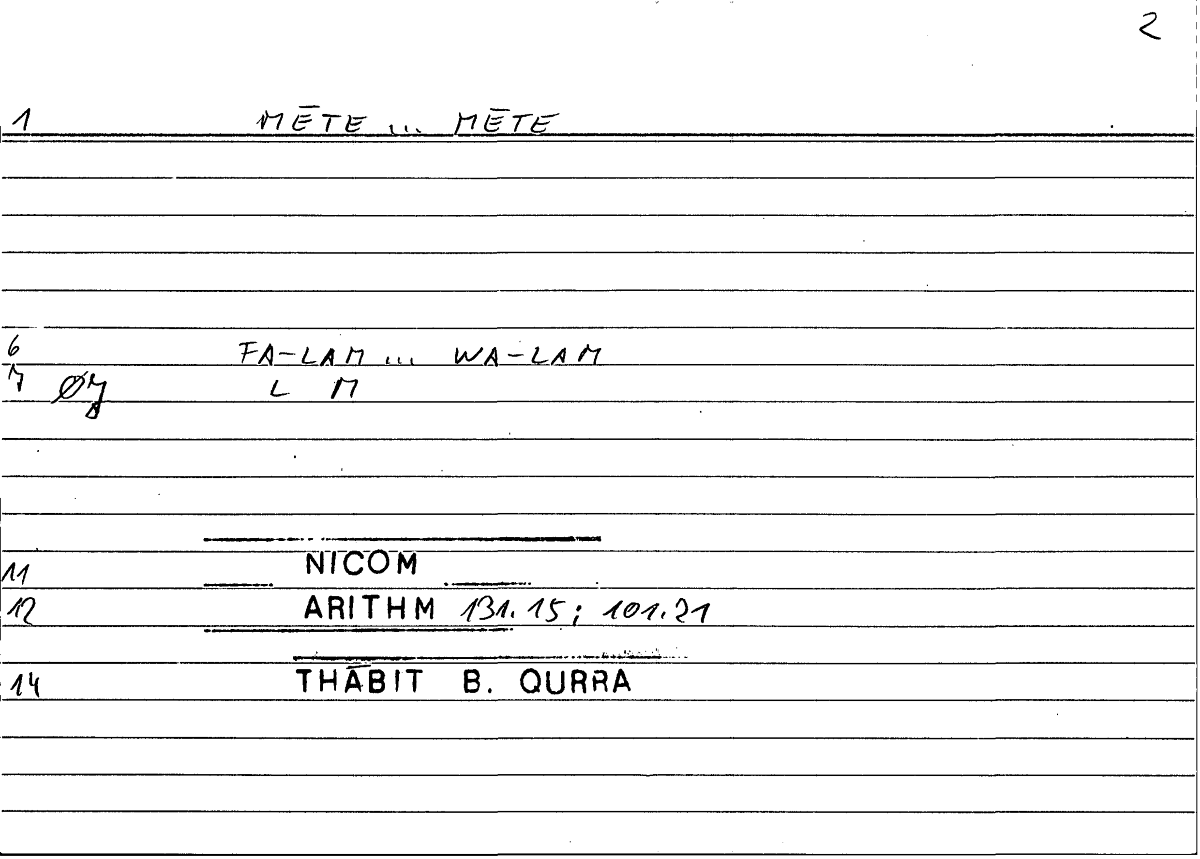 2
1 MĒTE ... MĒTE
6 FA-LAM ... WA-LAM
7 L M
11 NICOM
12 ARITHM 131.15; 101.21
14 THĀBIT B. QURRA